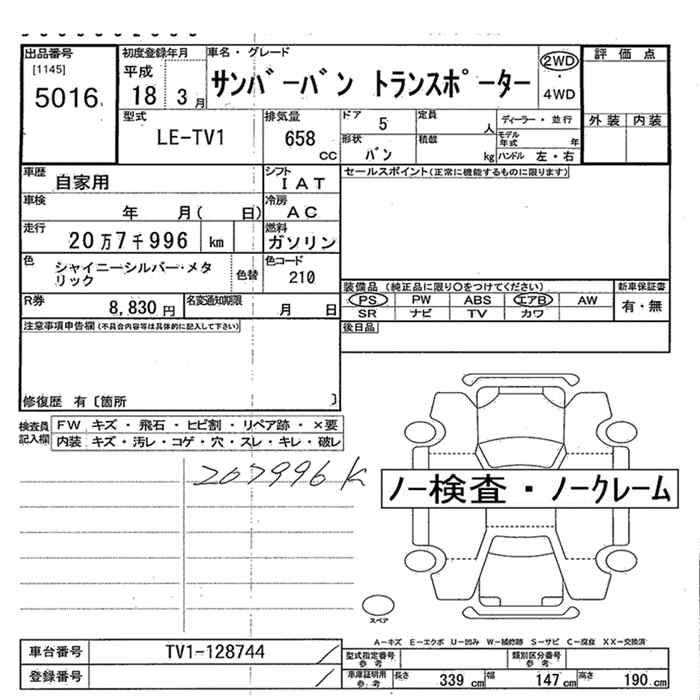 出品番号
[1145]
5016
初度登録年月
平成
18 3月
車名・グレード
サンバーバン トランスポーター
2WD
・
4WD
評価点
外装 内装
型式
LE-TV1
排気量
658
cc
ドア 5
定員 人
ディーラー・並行
形状
バン
積載 kg
モデル年式 年
ハンドル 左・右
車歴
自家用
シフト
IAT
セールスポイント(正常に機能するものに限ります)
車検 年 月( 日)
冷房
AC
走行
20万7千996 km
燃料
ガソリン
色
シャイニーシルバー・メタ
リック
色替
色コード
210
装備品 (純正品に限り〇をつけてください)
新車保証書
PS PW ABS エアB AW
有・無
SR ナビ TV カワ
R券
8,830円
名変通知期限
月 日
後日品
注意事項申告欄(不具合内容等は具体的に記入して下さい)
修復歴 有〔箇所 〕
検査員
記入欄
FW キズ・飛石・ヒビ割・リペア跡・×要
内装 キズ・汚レ・コゲ・穴・スレ・キレ・破レ
207996K
ノー検査・ノークレーム
スペア
A-キズ E-エクボ U-凹み W-補修跡 S-サビ C-腐食 XX-交換済
車台番号 TV1-128744
登録番号
型式指定番号
参考
類別区分番号
参考
車庫証明用
参考
長さ 339cm 幅 147cm 高さ 190cm